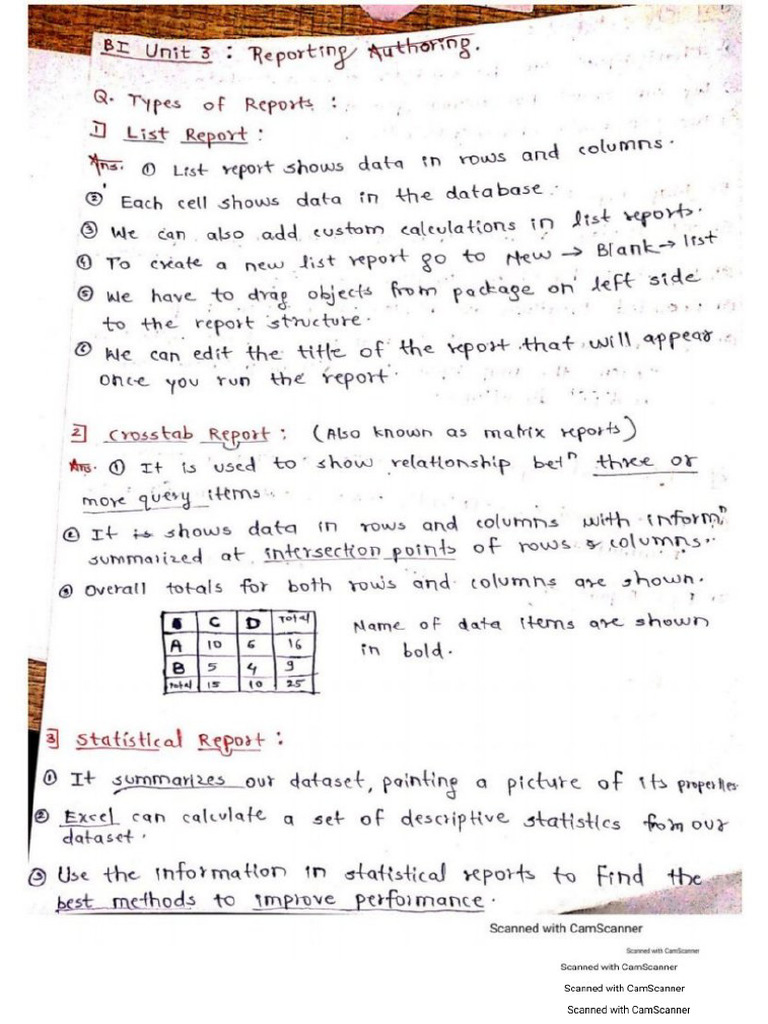 BI Unit 3 : Reporting Authoring.
Q. Types of Reports :
1] List Report :
Ans. ① List report shows data in rows and columns.
② Each cell shows data in the database.
③ We can also add custom calculations in list reports.
④ To create a new list report go to New → Blank → list
⑤ We have to drag objects from package on left side
to the report structure.
⑥ We can edit the title of the report that will appear
once you run the report.
2] Crosstab Report : (Also known as matrix reports)
Ans. ① It is used to show relationship betn three or
more query items.
② It is shows data in rows and columns with informn
summarized at intersection points of rows & columns.
③ Overall totals for both rows and columns are shown.
C D Total
A 10 6 16
B 5 4 9
Total 15 10 25
Name of data items are shown
in bold.
3] Statistical Report :
① It summarizes our dataset, painting a picture of its properties
② Excel can calculate a set of descriptive statistics from our
dataset.
③ Use the information in statistical reports to find the
best methods to improve performance.
Scanned with CamScanner
Scanned with CamScanner
Scanned with CamScanner
Scanned with CamScanner
Scanned with CamScanner